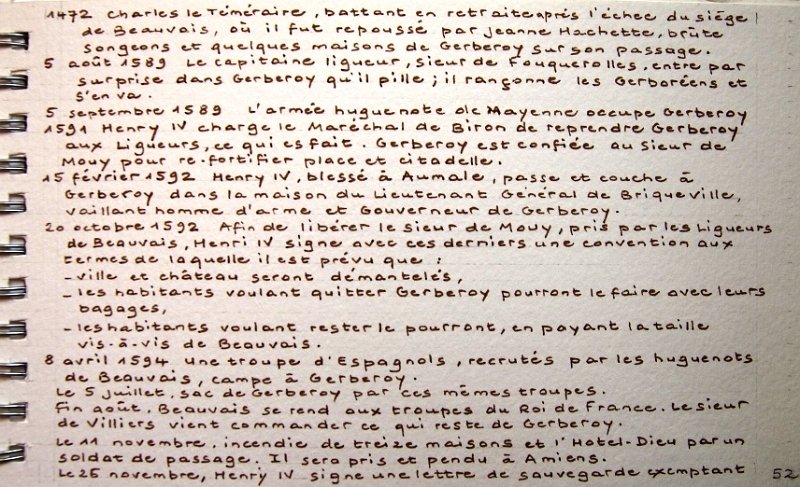 1472 Charles le Téméraire, battant en retraite après l'échec du siège
de Beauvais, où il fut repoussé par Jeanne Hachette, brûte
songeons et quelques maisons de Gerberoy sur son passage.
5 août 1589 Le capitaine ligueur, sieur de Fouquerolles, entre par
surprise dans Gerberoy qu'il pille ; il rançonne les Gerboréens et
s'en va.
5 septembre 1589 L'armée huguenote de Mayenne occupe Gerberoy
1591 Henry IV charge le Maréchal de Biron de reprendre Gerberoy
aux Ligueurs, ce qui es fait. Gerberoy est confiée au Sieur de
Mouy pour re-fortifier place et citadelle.
15 février 1592 Henry IV, blessé à Aumale, passe et couche à
Gerberoy dans la maison du Lieutenant Général de Briqueville,
vaillant homme d'arme et Gouverneur de Gerberoy.
20 octobre 1592 Afin de libérer le sieur de Mouy, pris par les Ligueurs
de Beauvais, Henri IV signe avec ces derniers une convention aux
termes de laquelle il est prévu que :
- ville et château seront démantelés,
- les habitants voulant quitter Gerberoy pourront le faire avec leurs
bagages,
- les habitants voulant rester le pourront, en payant la taille
vis-à-vis de Beauvais.
8 avril 1594 Une troupe d'Espagnols, recrutés par les huguenots
de Beauvais, campe à Gerberoy.
Le 5 juillet, sac de Gerberoy par ces mêmes troupes.
Fin août, Beauvais se rend aux troupes du Roi de France. Le sieur
de Villiers vient commander ce qui reste de Gerberoy.
Le 11 novembre, incendie de treize maisons et l'Hotel-Dieu par un
soldat de passage. Il sera pris et pendu à Amiens.
Le 25 novembre, Henry IV signe une lettre de sauvegarde exemptant
52